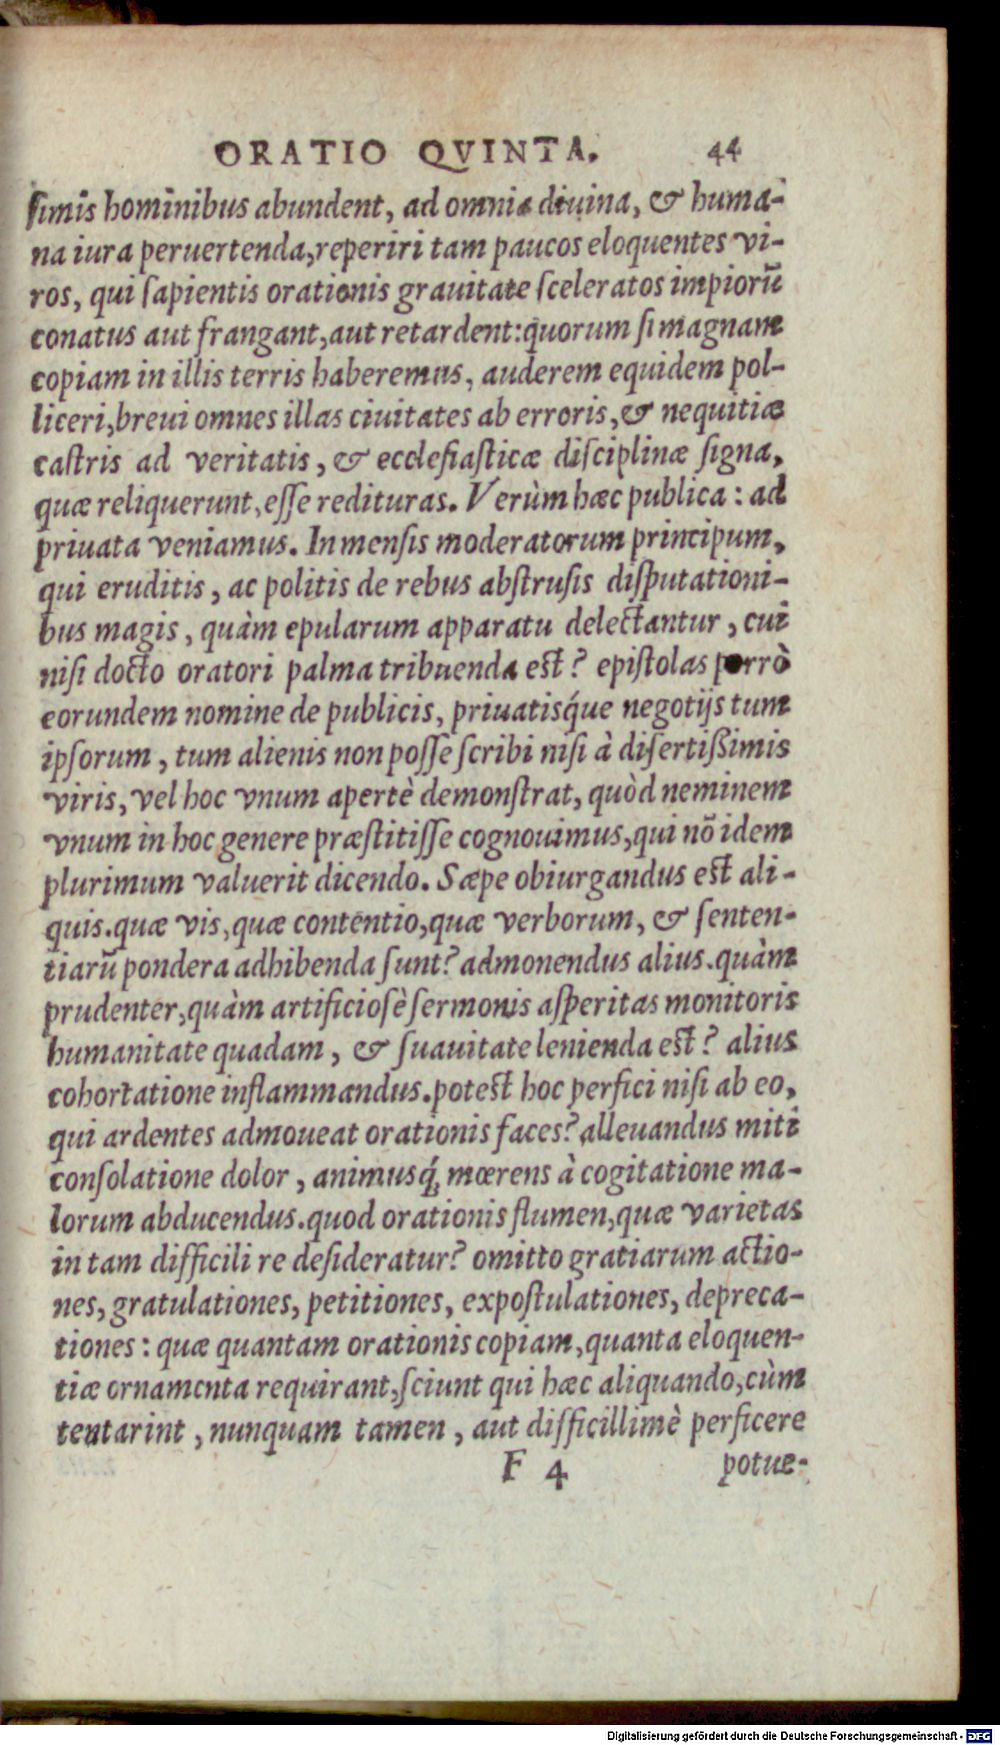 ORATIO QVINTA. 44
simis hominibus abundent, ad omnia diuina, & huma-
na iura peruertenda, reperiri tam paucos eloquentes vi-
ros, qui sapientis orationis grauitate sceleratos impiorũ
conatus aut frangant, aut retardent: quorum si magnam
copiam in illis terris haberemus, auderem equidem pol-
liceri, breui omnes illas ciuitates ab erroris, & nequitiæ
castris ad veritatis, & ecclesiasticæ disciplinæ signa,
quæ reliquerunt, esse redituras. Verùm hæc publica: ad
priuata veniamus. In mensis moderatorum principum,
qui eruditis, ac politis de rebus abstrusis disputationi-
bus magis, quàm epularum apparatu delectantur, cui
nisi docto oratori palma tribuenda est? epistolas porrò
eorundem nomine de publicis, priuatisq́ue negotijs tum
ipsorum, tum alienis non posse scribi nisi à disertißimis
viris, vel hoc vnum apertè demonstrat, quòd neminem
vnum in hoc genere præstitisse cognouimus, qui nõ idem
plurimum valuerit dicendo. Sæpe obiurgandus est ali-
quis. quæ vis, quæ contentio, quæ verborum, & senten-
tiarũ pondera adhibenda sunt? admonendus alius. quàm
prudenter, quàm artificiosè sermonis asperitas monitoris
humanitate quadam, & suauitate lenienda est? alius
cohortatione inflammandus. potest hoc perfici nisi ab eo,
qui ardentes admoueat orationis faces? alleuandus miti
consolatione dolor, animusq́; mœrens à cogitatione ma-
lorum abducendus. quod orationis flumen, quæ varietas
in tam difficili re desideratur? omitto gratiarum actio-
nes, gratulationes, petitiones, expostulationes, depreca-
tiones: quæ quantam orationis copiam, quanta eloquen-
tiæ ornamenta requirant, sciunt qui hæc aliquando, cùm
tentarint, nunquam tamen, aut difficillimè perficere
F 4 potue-
Digitalisierung gefördert durch die Deutsche Forschungsgemeinschaft - DFG